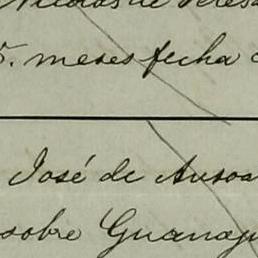 5. meses fecha
José de Ansoa
sobre Guanaju